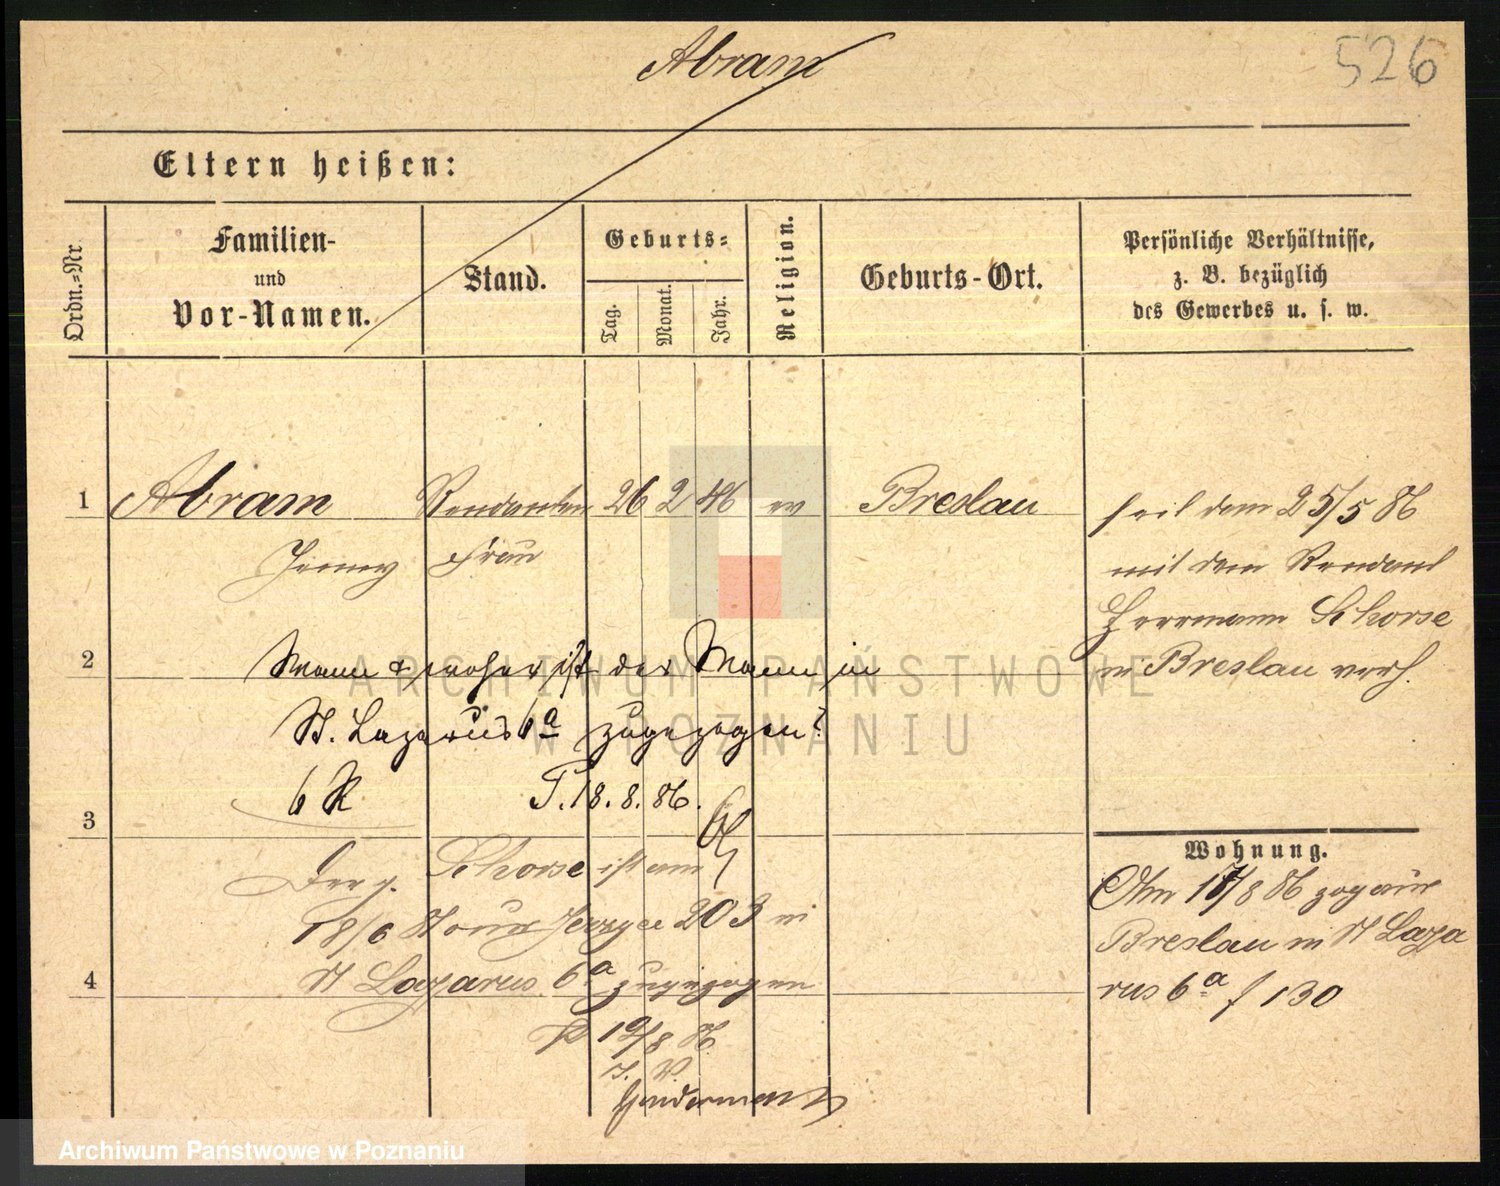 Abram
526
Eltern heißen:
Ordn.-Nr.
Familien-
und
Vor-Namen.
Stand.
Geburts-
Tag.
Monat.
Jahr.
Religion.
Geburts-Ort.
Persönliche Verhältnisse,
z. B. bezüglich
des Gewerbes u. s. w.
1 Abram Rendanten 26 2 46 ev Breslau
Jenny Frau
seit dem 25/5 86
mit dem Rendant
Herrmann Schorse
in Breslau verh.
2
Wann & woher ist der Mann in
St. Lazarus 6a zugezogen?
6 R P. 18. 8. 86.
3
Der p. Schorse ist am
18/6 aus Jersyce 203 in
4 St Lazarus 6a zugezogen
19/8 86
I. V.
Wohnung.
Am 17/8 86 zog aus
Breslau in St Laza
rus 6a f 130
ARCHIWUM PAŃSTWOWE
W POZNANIU
Archiwum Państwowe w Poznaniu